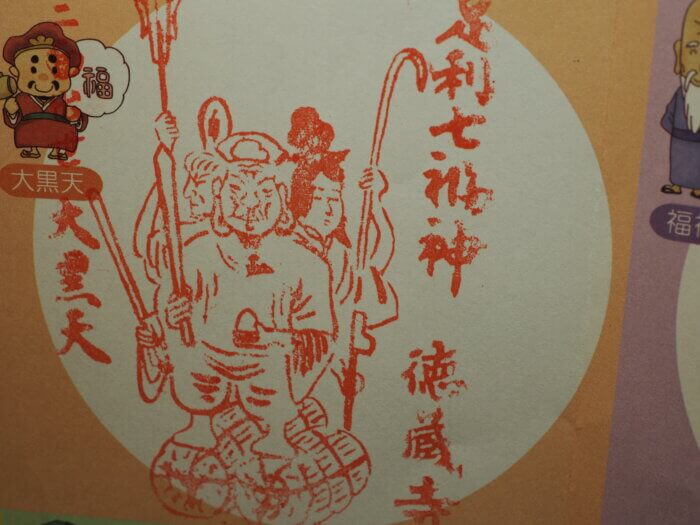 足利七福神 徳蔵寺
大黒天
福
大黒天
福